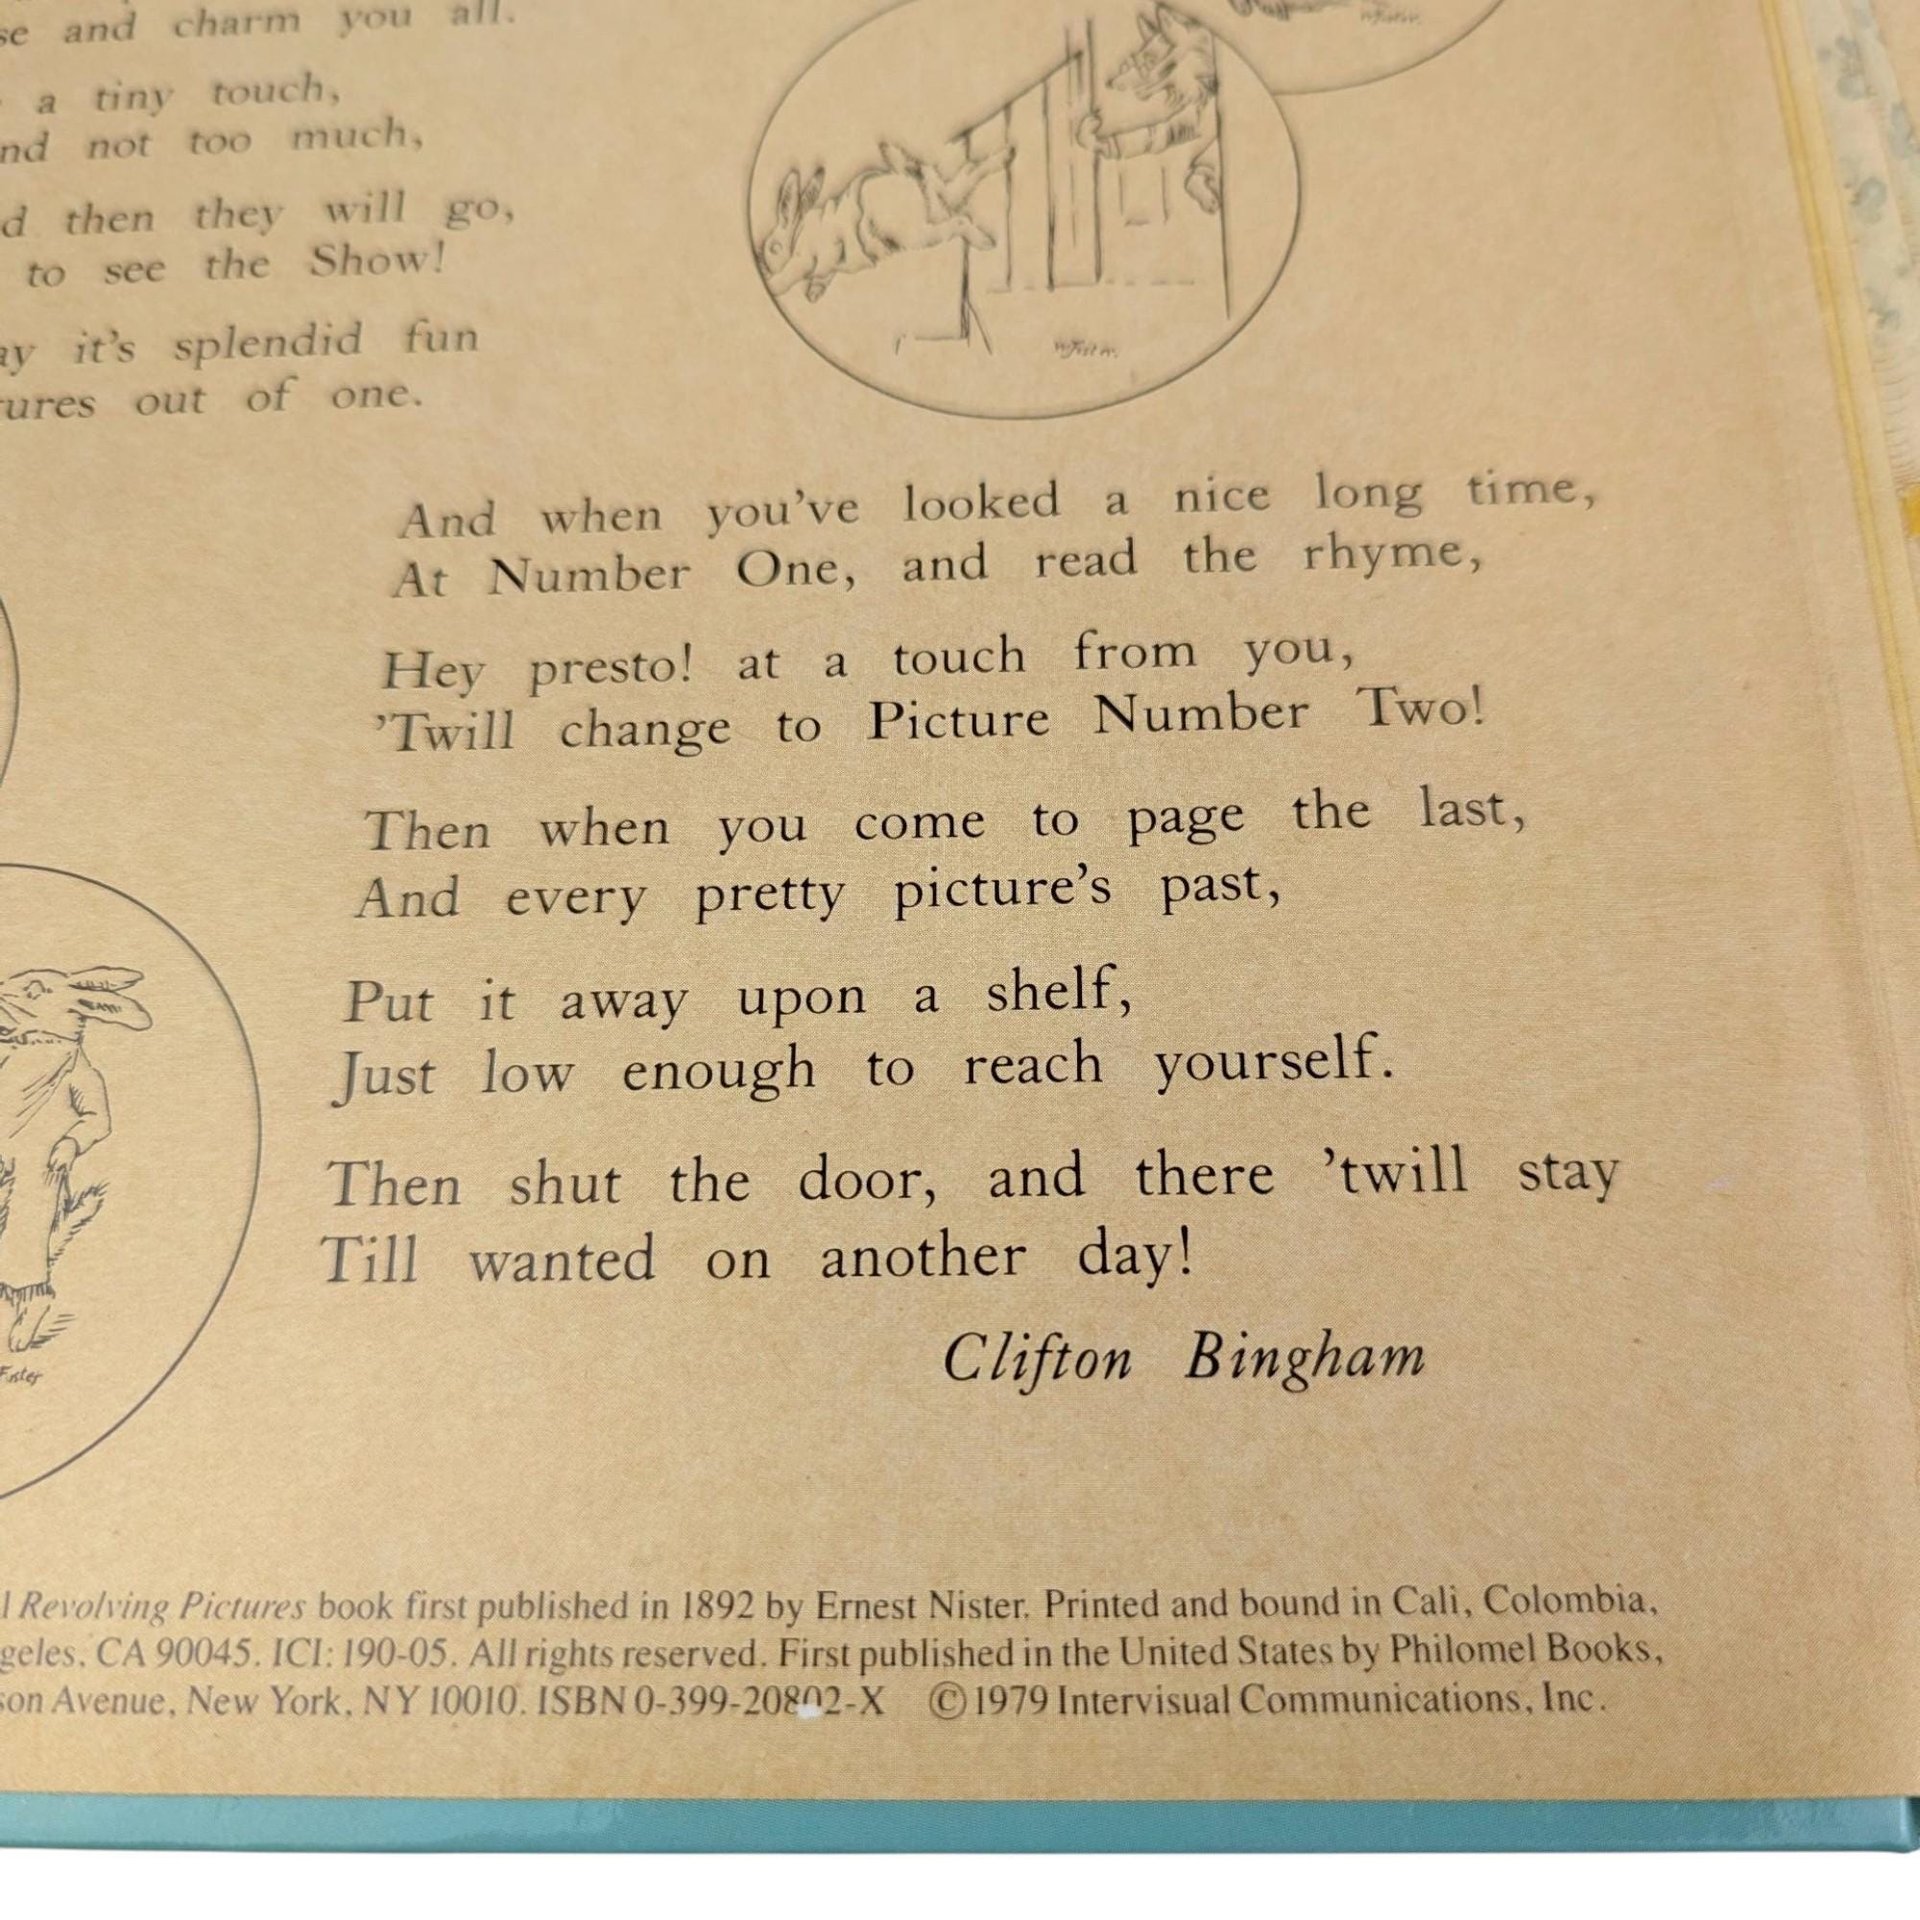 and charm you all.
a tiny touch,
not too much,
then they will go,
to see the Show!
it's splendid fun
out of one.
And when you've looked a nice long time,
At Number One, and read the rhyme,
Hey presto! at a touch from you,
'Twill change to Picture Number Two!
Then when you come to page the last,
And every pretty picture's past,
Put it away upon a shelf,
Just low enough to reach yourself.
Then shut the door, and there 'twill stay
Till wanted on another day!
Clifton Bingham
Revolving Pictures book first published in 1892 by Ernest Nister. Printed and bound in Cali, Colombia,
CA 90045. ICI: 190-05. All rights reserved. First published in the United States by Philomel Books,
Avenue, New York, NY 10010. ISBN 0-399-20802-X ©1979 Intervisual Communications, Inc.